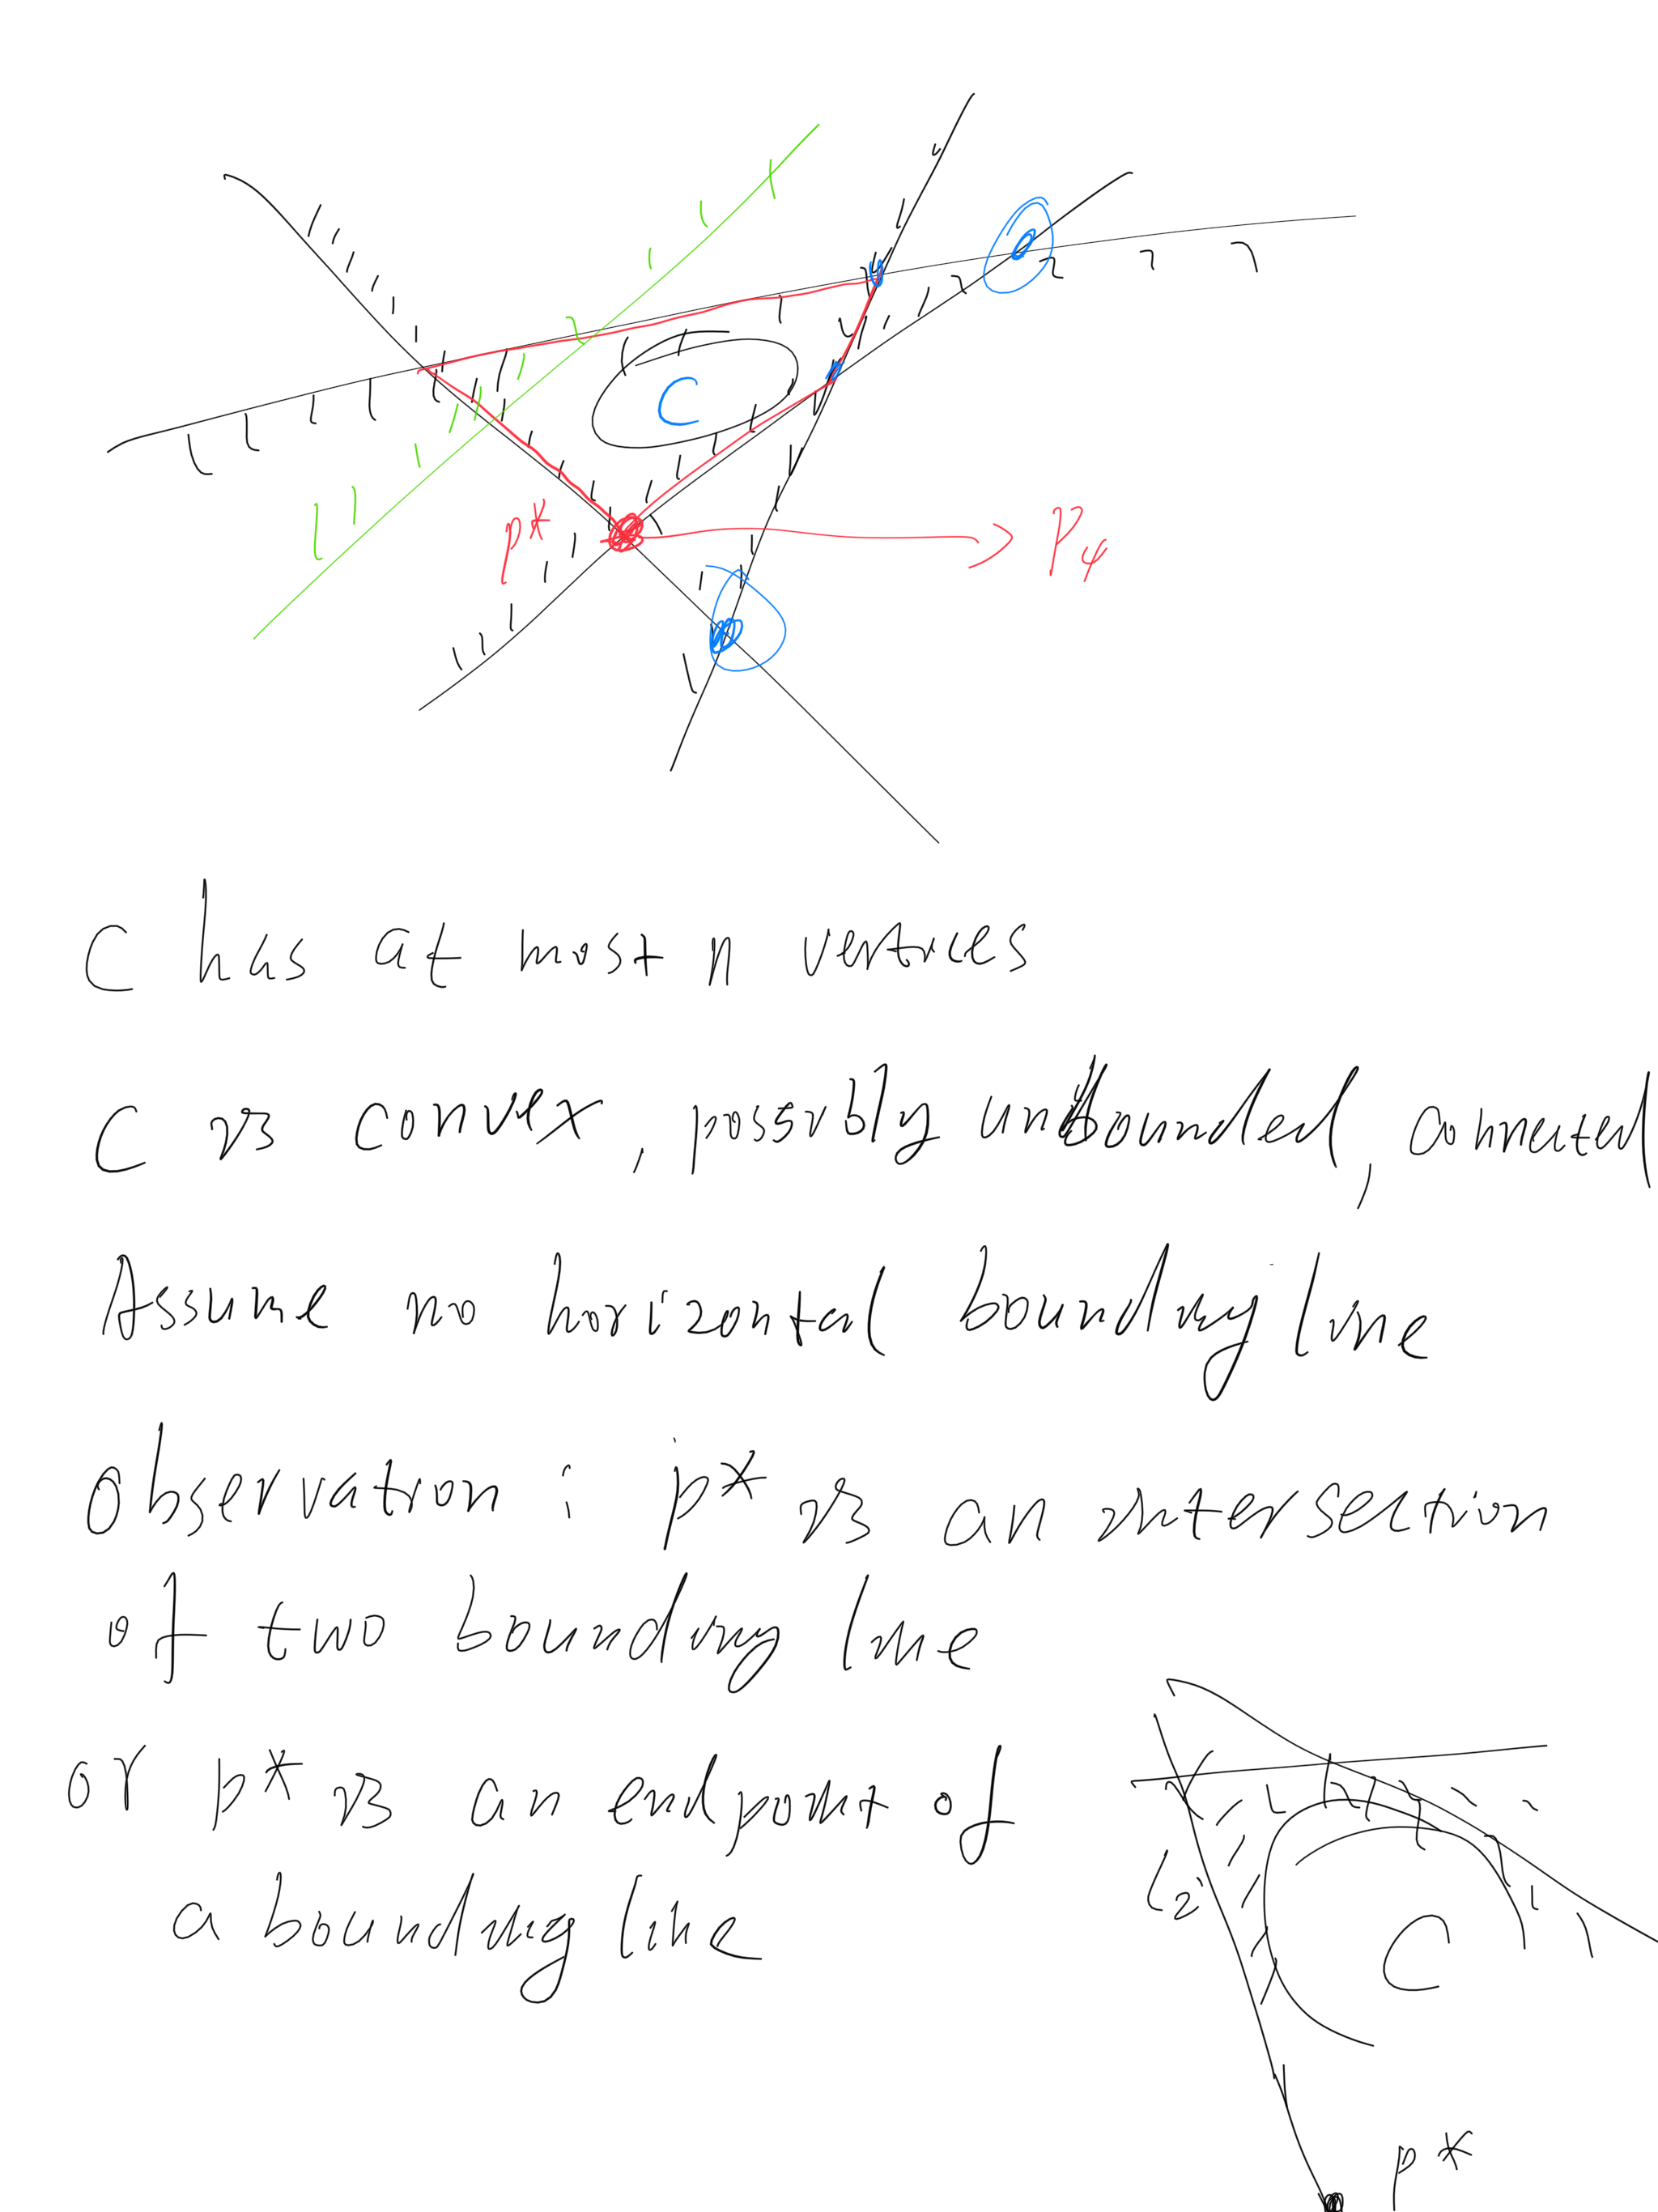 C
p*
P4
C has at most n vertices
C is convex, possibly unbounded, connected
Assume no horizontal bounding line
observation : p* is an intersection
of two bounding line
or p* is an endpoint of
a bounding line
C
p*